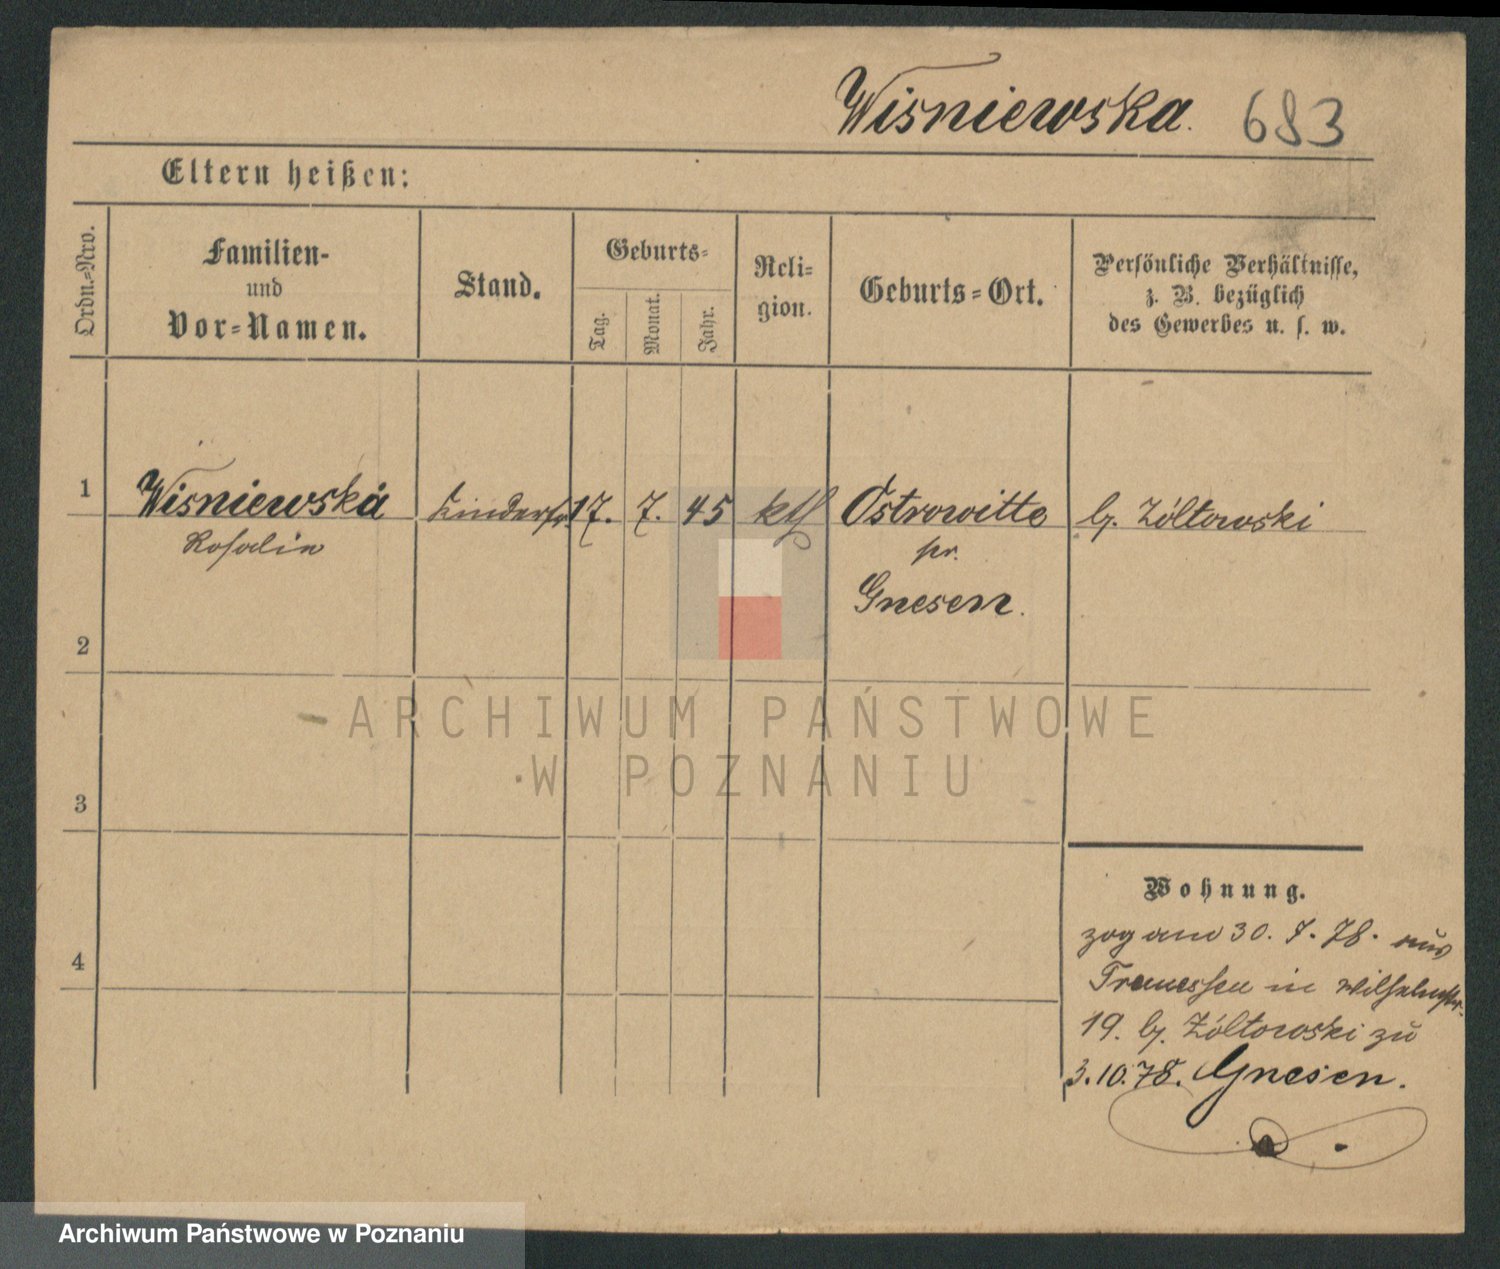 Wisniewska. 683
Eltern heißen:
Ordn.=Nro.
Familien-
und
Vor=Namen.
Stand.
Geburts=
Tag.
Monat.
Jahr.
Reli=
gion.
Geburts=Ort.
Persönliche Verhältnisse,
z. B. bezüglich
des Gewerbes u. s. w.
1 Wisniewska Kinderfr. 17. 7. 45 kth Ostrowitte bj. Zóltowski
Rosalie pr.
Gnesen.
2
3
4
Wohnung.
zog am 30. 7. 78. aus
Tremessen in Wilhelmstr.
19. bj. Zóltowski zu
3.10.78. Gnesen.
ARCHIWUM PAŃSTWOWE
W POZNANIU
Archiwum Państwowe w Poznaniu